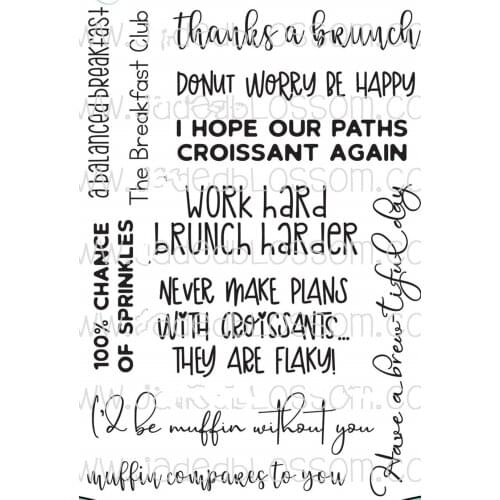 thanks a brunch
a balanced breakfast
The Breakfast Club
DONUT WORRY BE HAPPY
I HOPE OUR PATHS
CROISSANT AGAIN
WORK HARD
BRUNCH HARDER
100% CHANCE
OF SPRINKLES
NEVER MAKE PLANS
WITH CROISSANTS...
THEY ARE FLAKY!
Have a brew-tiful day
I'd be muffin without you
muffin compares to you
www.jadedblossom.com